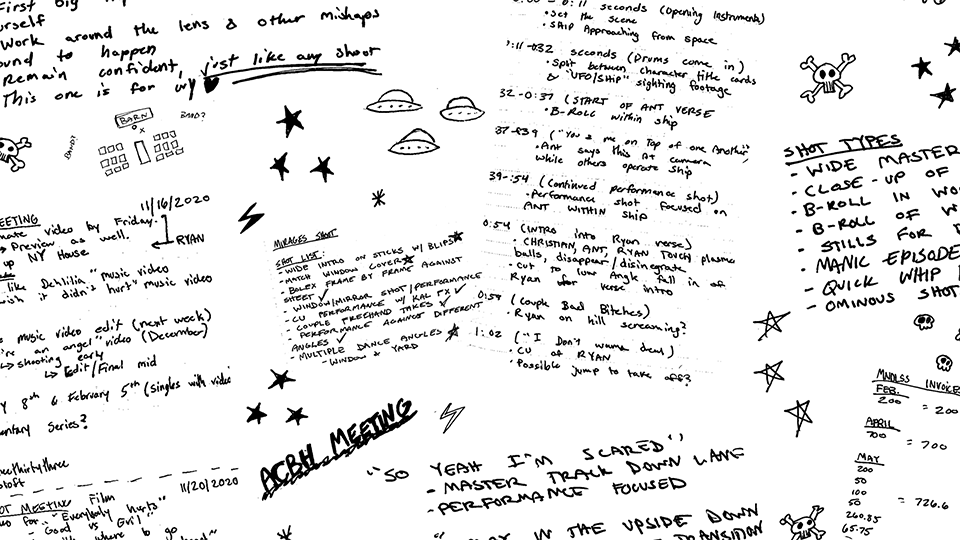 First big
urself
Work around the lens & other mishaps
ound to happen
Remain confident, just like any shoot
This one is for
BARN
BAND?
BAND?
EETING
11/16/2020
mate video by Friday.
↳ Preview as well.
RYAN
up NY House
like Dehlilia" music video
ish it didn't hurt" music video
music video edit (next week)
're an angel" video (December)
↳ shooting early
↳ Edit/Final mid
Y 8th & February 5th (singles with video
entary Series?
eethirtythree
oloft
11/20/2020
OT MEETING Film
for "Everybody Hurts"
- Good vs. Evil"
where to go
MIRAGES SHOOT
SHOT LIST:
- WIDE INTRO ON STICKS W/ BLIPS
- MATCH WINDOW COVER
- BOLEX FRAME BY FRAME AGAINST
SHEET ✓
- WINDOW/MIRROR SHOT/PERFORMANCE
- CU PERFORMANCE W/ KAL FX ✓
- COUPLE FREEHAND TAKES ✓
- PERFORMANCE AGAINST DIFFERENT
ANGLES ✓
- MULTIPLE DANCE ANGLES
- WINDOW & YARD
ACBH MEETING
0:11 seconds (opening instruments)
• Set the scene
• SHIP Approaching from space
0:11-032 seconds (Drums come in)
• Split between character title cards
& "UFO/SHIP" sighting footage
32-0:37 (START OF ANT VERSE
• B-ROLL within ship
37-039 ("You & me on Top of one Another"
• Ant says this At camera
while others operate ship
39-:54 (Continued performance shot)
• Performance shot focused on
ANT WITHIN SHIP
0:54 (INTRO into Ryan verse)
• CHRISTIAN, ANT RYAN TOUCH plasma
balls, disappear/disinegrate
• cut to low Angle fall in of
Ryan for verse intro
0:59 (Couple Bad Bitches)
• Ryan on hill screaming?
1:02 ("I Don't wanna deal)
• CU of RYAN
• Possible jump to take off?
"SO YEAH I'M SCARED"
- MASTER TRACK DOWN LANE
- PERFORMANCE FOCUSED
IN THE UPSIDE DOWN
TRANSITION
SHOT TYPES
- WIDE MASTER
- CLOSE-UP OF
- B-ROLL IN
- B-ROLL OF
- STILLS FOR
- MANIC EPISODE
- QUICK WHIP
- OMINOUS SHOT
MNDLSS INVOICE
FEB.
200 = 200
APRIL
700 = 700
MAY
200
50
100
50 = 726.6
260.85
65.75